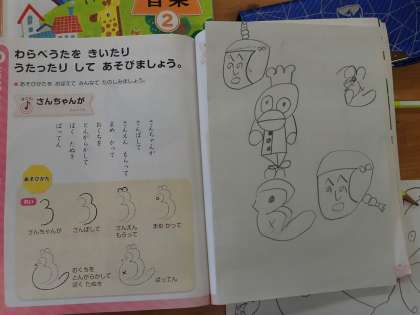 音楽
2
わらべうたを きいたり
うたったり して あそびましょう。
さんちゃんが
さんちゃんが
さんぽして
さんえん もらって
まめ かって
おくちを
とんがらかして
ぼく たぬき
ばってん
あそびかた
さんちゃんが
さんぽして
さんえん
もらって
まめ かって
おくちを
とんがらかして
ぼく たぬき
ばってん